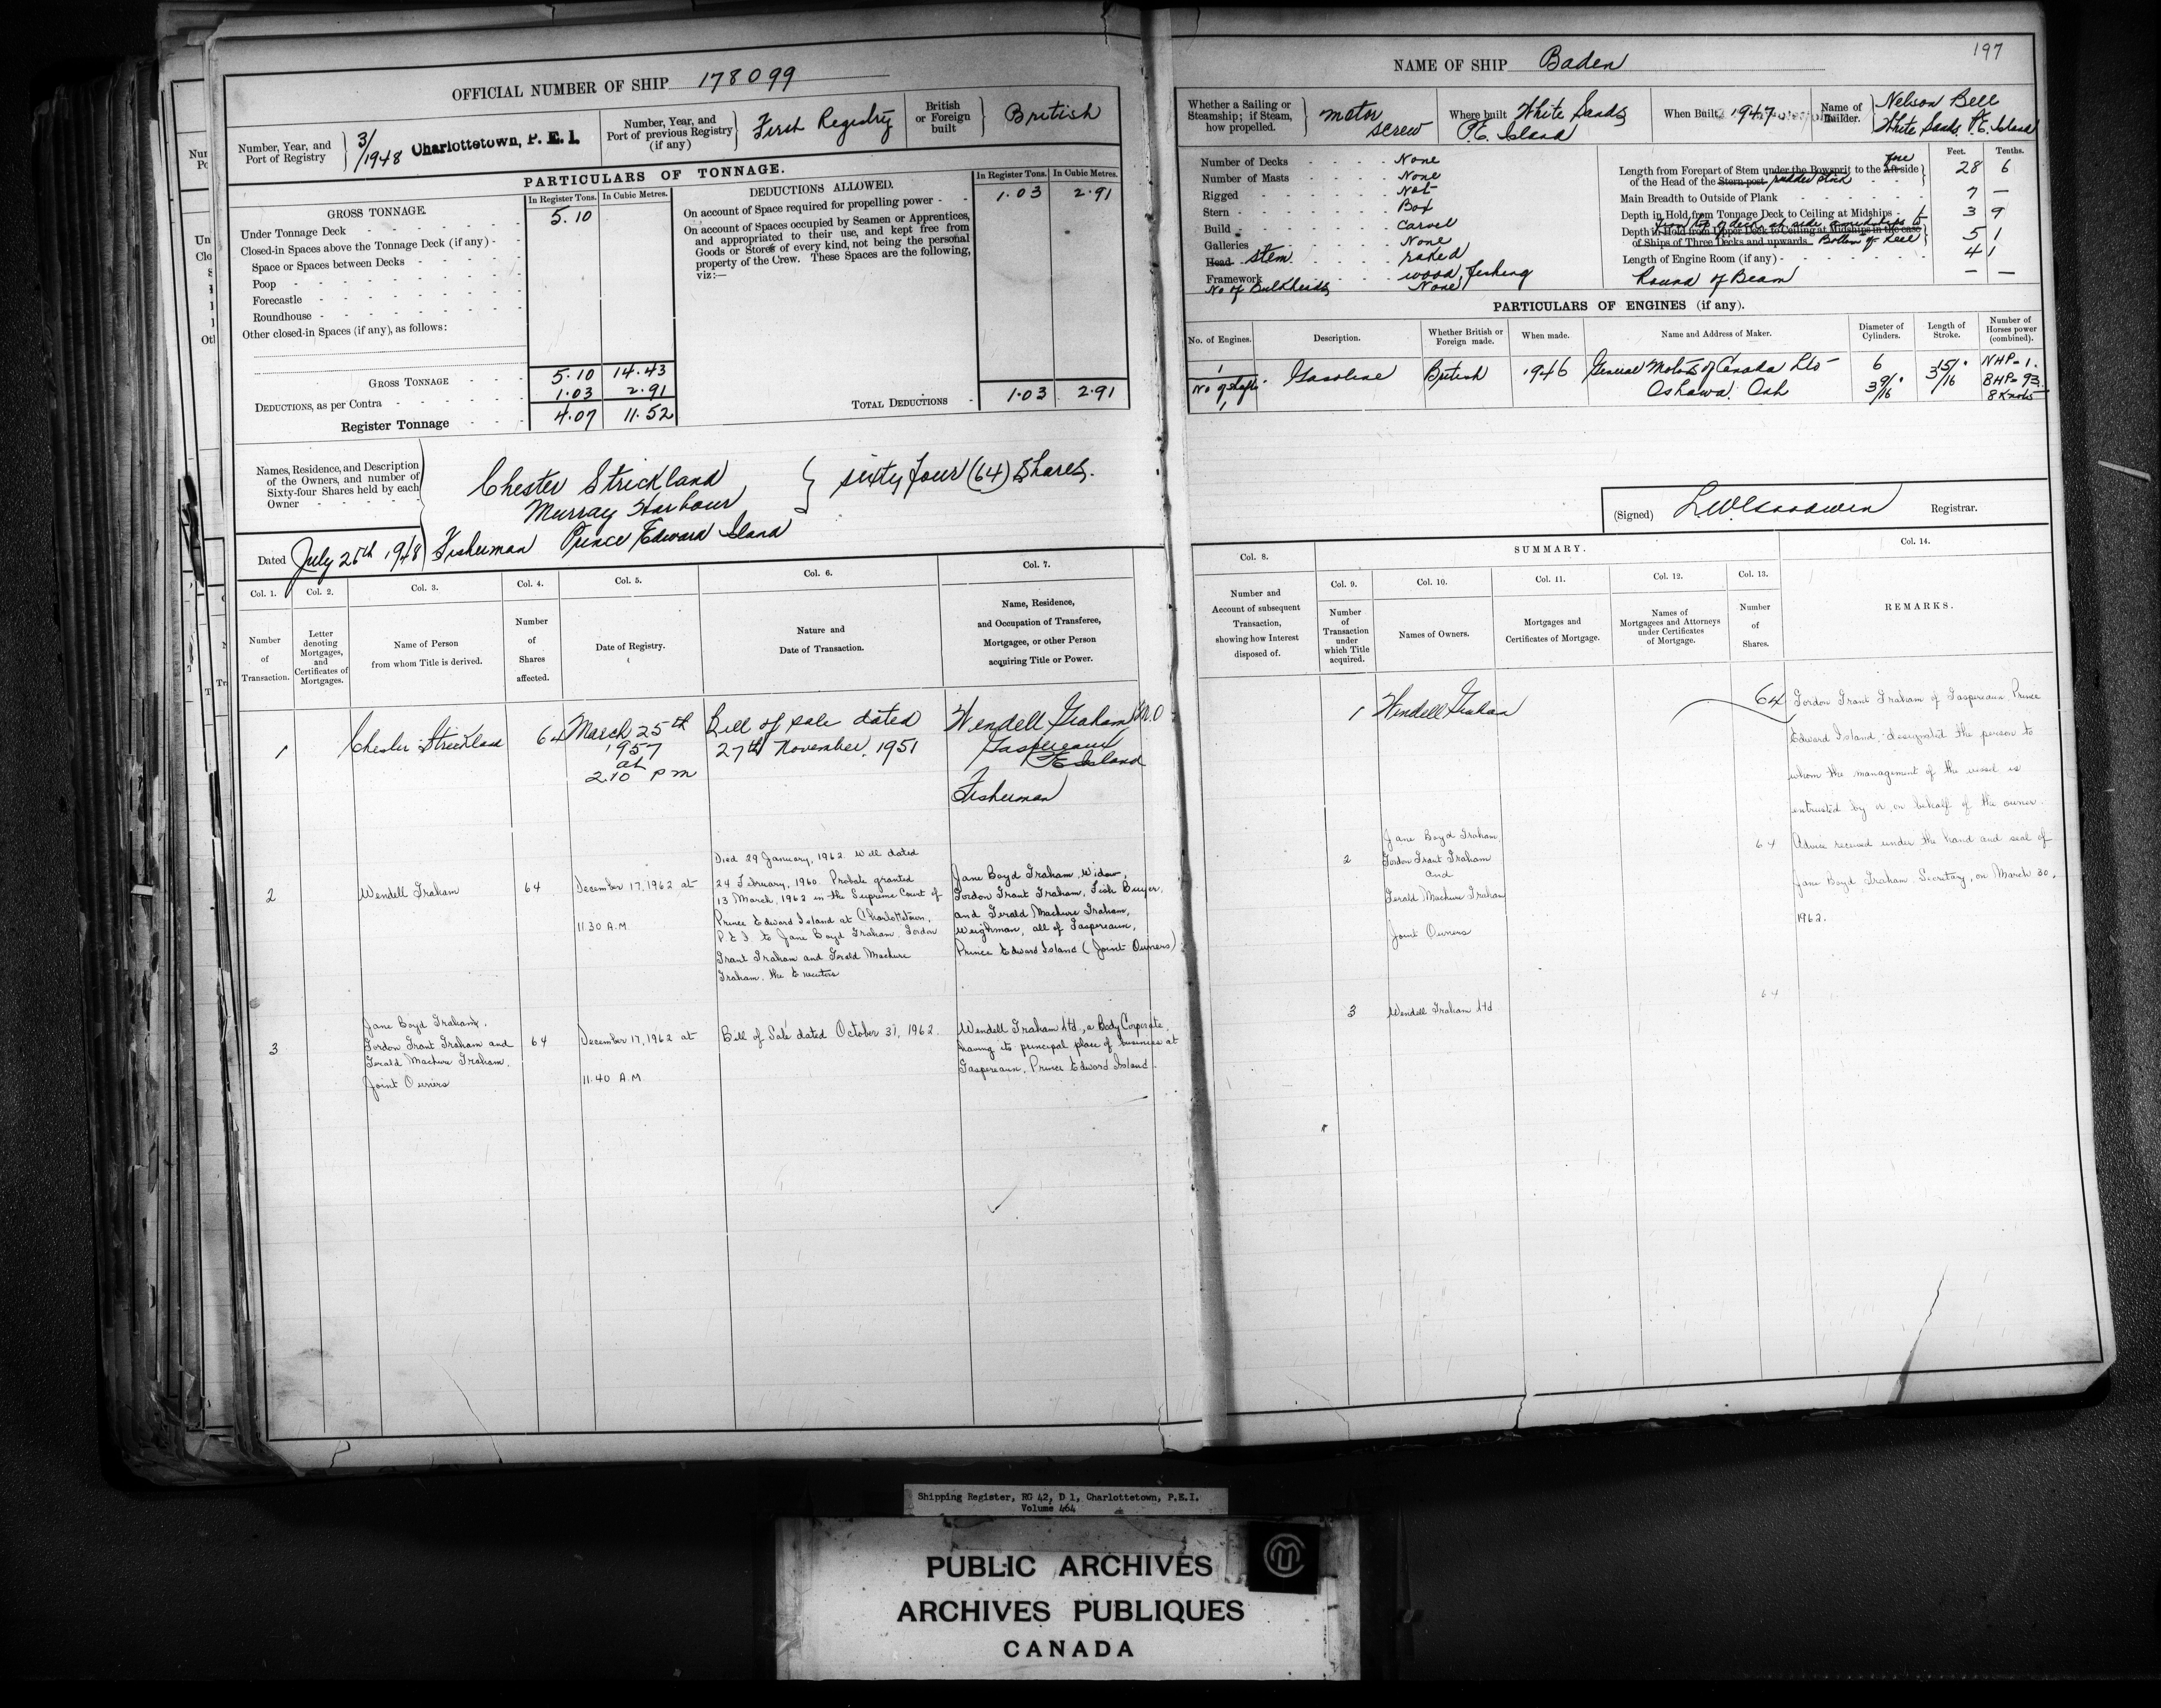 OFFICIAL NUMBER OF SHIP 178099
Number, Year, and
Port of Registry
3/1948 Charlottetown, P. E. I.
Number, Year, and
Port of previous Registry
(if any)
First Registry
British
or Foreign
built
British
PARTICULARS OF TONNAGE.
GROSS TONNAGE.
In Register Tons. In Cubic Metres.
Under Tonnage Deck 5.10
Closed-in Spaces above the Tonnage Deck (if any) -
Space or Spaces between Decks
Poop
Forecastle
Roundhouse
Other closed-in Spaces (if any), as follows:
GROSS TONNAGE 5.10 14.43
DEDUCTIONS, as per Contra 1.03 2.91
Register Tonnage 4.07 11.52
DEDUCTIONS ALLOWED.
In Register Tons. In Cubic Metres.
On account of Space required for propelling power - 1.03 2.91
On account of Spaces occupied by Seamen or Apprentices,
and appropriated to their use, and kept free from
Goods or Stores of every kind, not being the personal
property of the Crew. These Spaces are the following,
viz:—
TOTAL DEDUCTIONS 1.03 2.91
Names, Residence, and Description
of the Owners, and number of
Sixty-four Shares held by each
Owner
Chester Strickland
Murray Harbour
Prince Edward Island
Fisherman
sixty four (64) Shares.
Dated July 26th 1948
Col. 1. Col. 2. Col. 3. Col. 4. Col. 5. Col. 6. Col. 7.
Number
of
Transaction.
Letter
denoting
Mortgages,
and
Certificates of
Mortgages.
Name of Person
from whom Title is derived.
Number
of
Shares
affected.
Date of Registry.
Nature and
Date of Transaction.
Name, Residence,
and Occupation of Transferee,
Mortgagee, or other Person
acquiring Title or Power.
1
Chester Strickland
64
March 25th
1957
at
2.10 P m
Bill of sale dated
27th November, 1951
Wendell Graham
Gaspereaux
P E Island
Fisherman
2
Wendell Graham
64
December 17, 1962 at
11.30 A.M.
Died 29 January, 1962. Will dated
24 February, 1960. Probate granted
13 March, 1962 in the Supreme Court of
Prince Edward Island at Charlottetown,
P.E.I. to Jane Boyd Graham, Gordon
Grant Graham and Gerald Machure
Graham, the Executors
Jane Boyd Graham, Widow,
Gordon Grant Graham, Fish Buyer,
and Gerald Machure Graham,
Weighman, all of Gaspereaux,
Prince Edward Island (Joint Owners)
3
Jane Boyd Graham,
Gordon Grant Graham and
Gerald Machure Graham,
Joint Owners
64
December 17, 1962 at
11.40 A.M.
Bill of Sale dated October 31, 1962.
Wendell Graham Ltd., a Body Corporate,
having its principal place of business at
Gaspereaux, Prince Edward Island.
197
NAME OF SHIP Baden
Whether a Sailing or
Steamship; if Steam,
how propelled.
motor
screw
Where built White Sands
P.E. Island
When Built 1947
Name of
Builder.
Nelson Bell
White Sands P.E. Island
Number of Decks None
Number of Masts None
Rigged Not
Stern Box
Build Carvel
Galleries None
Head stem raked
Framework wood, fishing
No of Bulkheads None
Length from Forepart of Stem under the Bowsprit to the Aft side fore
of the Head of the Stern-post rudder stock
Feet. Tenths.
28 6
Main Breadth to Outside of Plank 7 —
Depth in Hold from Tonnage Deck to Ceiling at Midships 3 9
Depth in Hold from Upper Deck to Ceiling at Midships in the case
of Ships of Three Decks and upwards
From top of deck at side amidships to
Bottom of keel
5 1
Length of Engine Room (if any) 4 1
Round of Beam — —
PARTICULARS OF ENGINES (if any).
No. of Engines. Description. Whether British or
Foreign made. When made. Name and Address of Maker. Diameter of
Cylinders. Length of
Stroke. Number of
Horses power
(combined).
1
No of shafts
1
Gasoline British 1946
General Motors of Canada Ltd
Oshawa. Ont
6
3 9/16
3 15/16
NHP= 1.
BHP= 93.
8 Knots
(Signed) Registrar.
SUMMARY.
Col. 8. Col. 9. Col. 10. Col. 11. Col. 12. Col. 13. Col. 14.
Number and
Account of subsequent
Transaction,
showing how Interest
disposed of.
Number
of
Transaction
under
which Title
acquired.
Names of Owners.
Mortgages and
Certificates of Mortgage.
Names of
Mortgagees and Attorneys
under Certificates
of Mortgage.
Number
of
Shares.
REMARKS.
1 Wendell Graham 64
2
Jane Boyd Graham,
Gordon Grant Graham
and
Gerald Machure Graham
Joint Owners
64
3 Wendell Graham Ltd 64
Gordon Grant Graham of Gaspereaux, Prince
Edward Island, designated the person to
whom the management of the vessel is
entrusted by or on behalf of the owner.
Advice received under the hand and seal of
Jane Boyd Graham, Secretary, on March 30,
1962.
Shipping Register, RG 42, D 1, Charlottetown, P.E.I.
Volume 464
PUBLIC ARCHIVES
ARCHIVES PUBLIQUES
CANADA